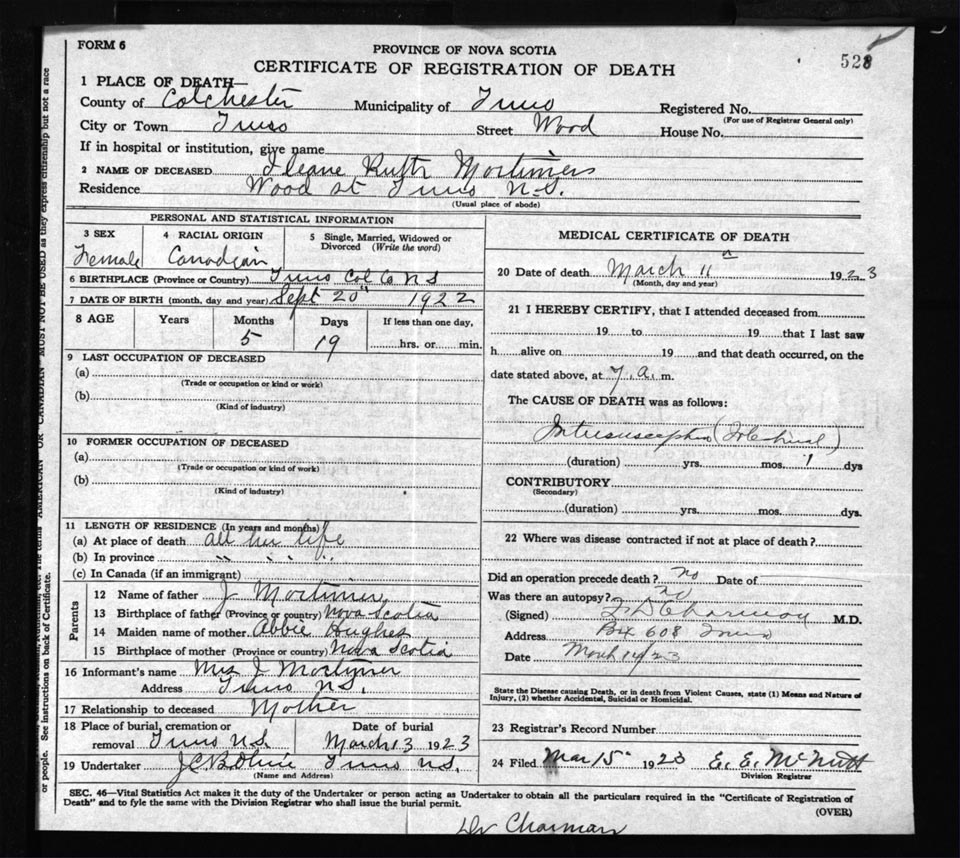 FORM 6
PROVINCE OF NOVA SCOTIA
528
CERTIFICATE OF REGISTRATION OF DEATH
1 PLACE OF DEATH—
County of Colchester Municipality of Truro Registered No.
(For use of Registrar General only)
City or Town Truro Street Wood House No.
If in hospital or institution, give name
2 NAME OF DECEASED Ileane Ruth Mortimer
Residence Wood st Truro N.S.
(Usual place of abode)
PERSONAL AND STATISTICAL INFORMATION
3 SEX 4 RACIAL ORIGIN 5 Single, Married, Widowed or Divorced (Write the word)
Female Canadian
6 BIRTHPLACE (Province or Country) Truro Col Co N S
7 DATE OF BIRTH (month, day and year) Sept 20" 1922
8 AGE Years Months Days If less than one day,
5 19 hrs. or min.
9 LAST OCCUPATION OF DECEASED
(a)
(Trade or occupation or kind or work)
(b)
(Kind of industry)
10 FORMER OCCUPATION OF DECEASED
(a)
(Trade or occupation or kind of work)
(b)
(Kind of industry)
11 LENGTH OF RESIDENCE (In years and months)
(a) At place of death all her life
(b) In province " " "
(c) In Canada (if an immigrant)
Parents
12 Name of father J Mortimer
13 Birthplace of father (Province or country) Nova Scotia
14 Maiden name of mother Abbie Hughes
15 Birthplace of mother (Province or country) Nova Scotia
16 Informant's name Mrs J. Mortimer
Address Truro N.S.
17 Relationship to deceased Mother
18 Place of burial, cremation or removal Truro N.S Date of burial March 13 1923
19 Undertaker Truro N.S.
(Name and Address)
MEDICAL CERTIFICATE OF DEATH
20 Date of death March 11 1923
(Month, day and year)
21 I HEREBY CERTIFY, that I attended deceased from
19 to 19 that I last saw
h alive on 19 and that death occurred, on the
date stated above, at 7. a. m.
The CAUSE OF DEATH was as follows:
Intussusception (Intestinal)
(duration) yrs. mos. 1 dys
CONTRIBUTORY
(Secondary)
(duration) yrs. mos. dys.
22 Where was disease contracted if not at place of death?
Did an operation precede death? no Date of
Was there an autopsy? no
(Signed) M.D.
Address Box 608 Truro
Date March 14/23
State the Disease causing Death, or in death from Violent Causes, state (1) Means and Nature of
Injury, (2) whether Accidental, Suicidal or Homicidal.
23 Registrar's Record Number
24 Filed Mar 15 1923 E. E. McNutt
Division Registrar
SEC. 46—Vital Statistics Act makes it the duty of the Undertaker or person acting as Undertaker to obtain all the particulars required in the "Certificate of Registration of
Death" and to fyle the same with the Division Registrar who shall issue the burial permit.
(OVER)
Dr Charman
or people. See instructions on back of Certificate.
AMERICAN OR CANADIAN MUST NOT BE USED as they express citizenship but not a race